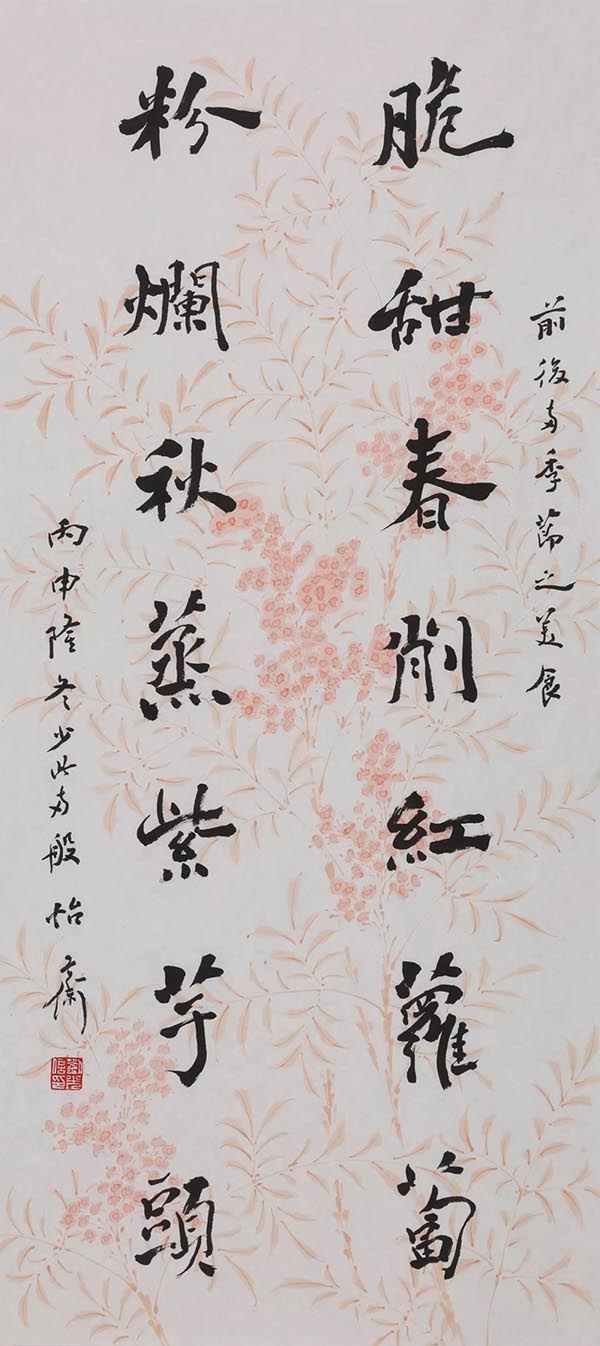 脆甜春削紅蘿蔔
粉爛秋蒸紫芋頭
前後兩季節之美食
丙申隆冬少此兩般怡齋